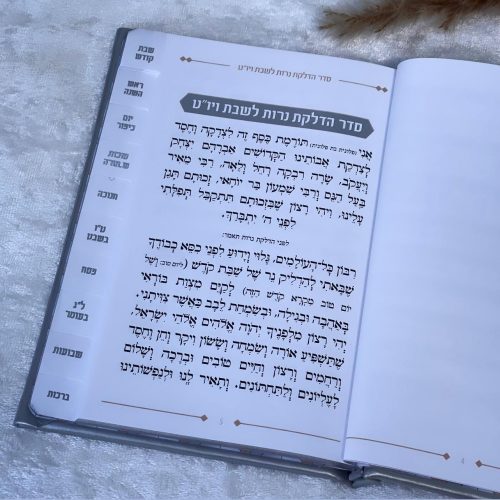 סדר הדלקת נרות לשבת ויו״ט
סדר הדלקת נרות לשבת ויו״ט
אֲנִי (פלונית בת פלונית) תּוֹרֶמֶת כֶּסֶף זֶה לִצְדָקָה, וְחֶסֶד
לְצִדְקַת אֲבוֹתֵינוּ הַקְּדוֹשִׁים אַבְרָהָם יִצְחָק
וְיַעֲקֹב, שָׂרָה רִבְקָה רָחֵל וְלֵאָה, רַבִּי מֵאִיר
בַּעַל הַנֵּס וְרַבִּי שִׁמְעוֹן בַּר יוֹחַאי, זְכוּתָם תָּגֵן
עָלֵינוּ, וִיהִי רָצוֹן שֶׁבִּזְכוּתָם תִּתְקַבֵּל תְּפִלָּתִי
לִפְנֵי ה׳ יִתְבָּרַךְ.
לפני הדלקת נרות תאמר:
רִבּוֹן כָּל־הָעוֹלָמִים, גָּלוּי וְיָדוּעַ לִפְנֵי כִסֵּא כְבוֹדֶךָ
שֶׁבָּאתִי לְהַדְלִיק נֵר שֶׁל שַׁבַּת קֹדֶשׁ (ליום טוב: וְשֶׁל
יוֹם טוֹב מִקְרָא קֹדֶשׁ הַזֶּה) לְקַיֵּם מִצְוַת בּוֹרְאִי
בְּאַהֲבָה וּבְגִילָה, וּבְשִׂמְחַת לֵבָב כַּאֲשֶׁר צִוִּיתַנִי.
יְהִי רָצוֹן מִלְּפָנֶיךָ יְהֹוָה אֱלֹהִים אֱלֹהֵי יִשְׂרָאֵל,
שֶׁתַּשְׁפִּיעַ אוֹרָה וְשִׂמְחָה וְשָׂשׂוֹן וִיקָר וְחֵן וָחֶסֶד
וְרַחֲמִים וְרָצוֹן וְחַיִּים טוֹבִים וּבְרָכָה וְשָׁלוֹם
לָעֶלְיוֹנִים וְלַתַּחְתּוֹנִים. וְתָאִיר לָנוּ וּלְנַפְשׁוֹתֵינוּ
5
4
שבת
קודש
ראש
השנה
יום
כיפור
סוכות
ש.תורה
חנוכה
ט״ו
בשבט
פסח
ל״ג
בעומר
שבועות
ברכות